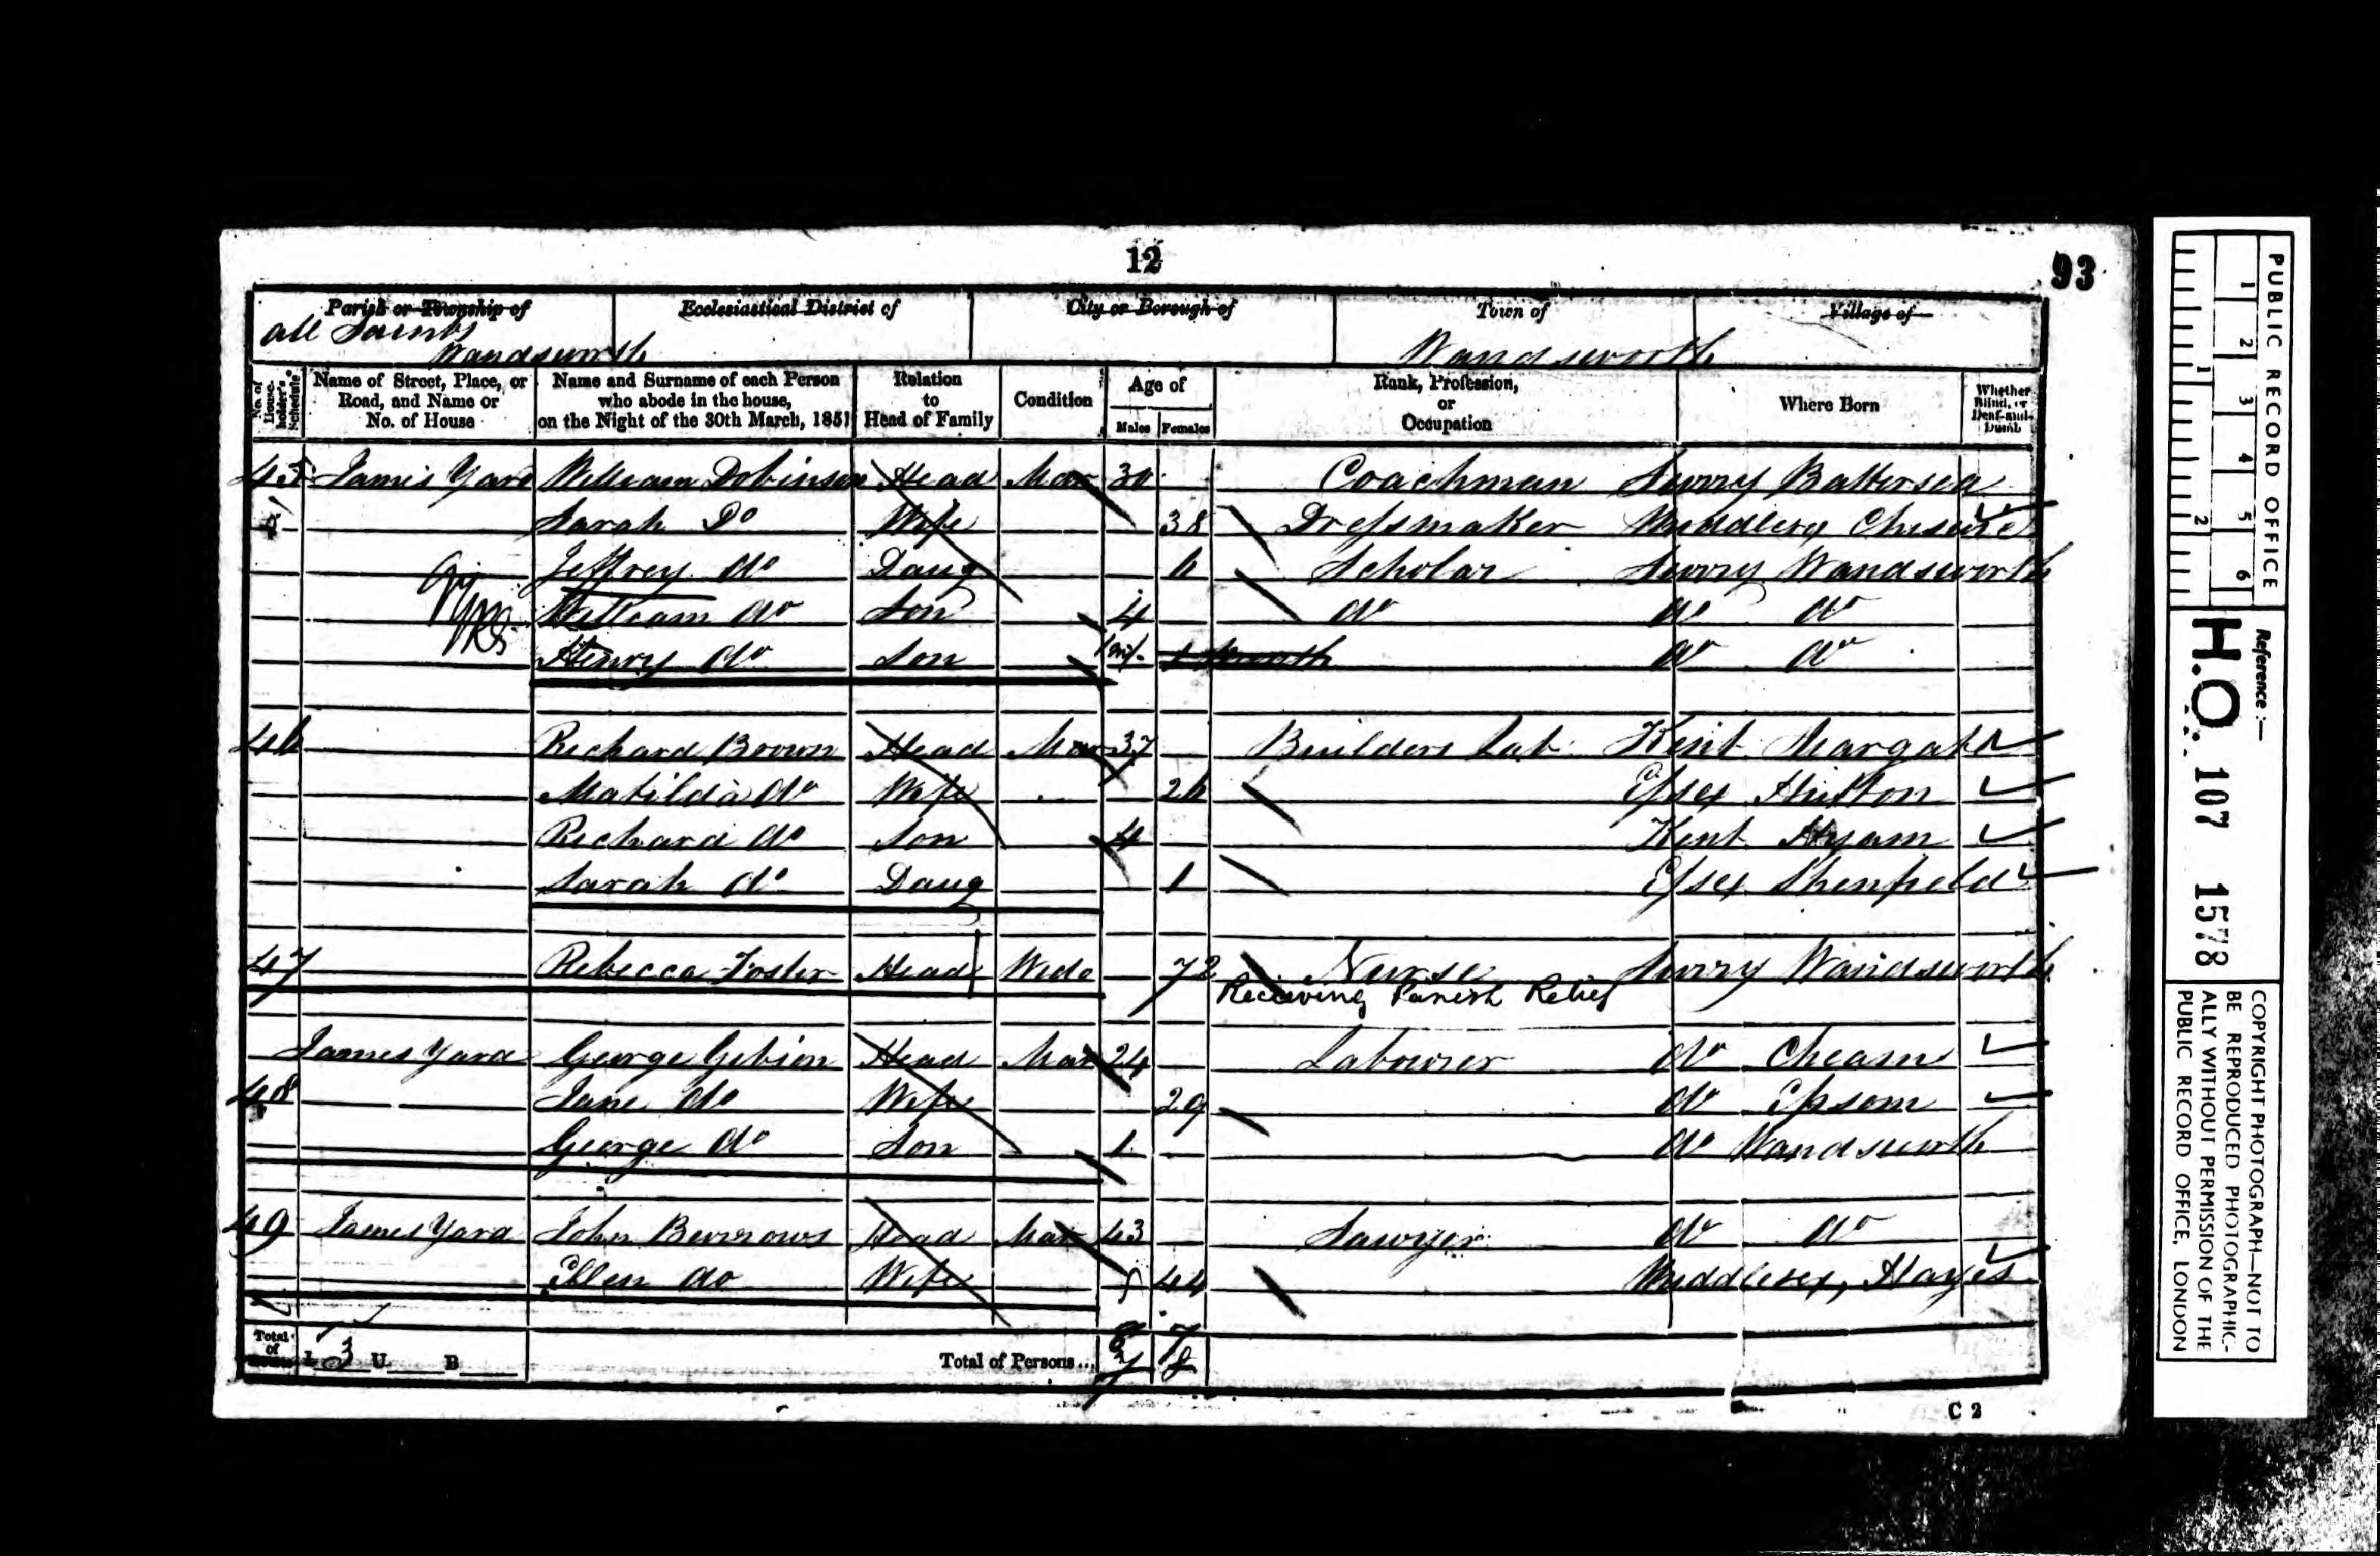 12
93
Parish or Township of Ecclesiastical District of City or Borough of Town of Village of
All Saints
Wandsworth Wandsworth
No. of House-holder's Schedule Name of Street, Place, or Road, and Name or No. of House Name and Surname of each Person who abode in the house, on the Night of the 30th March, 1851 Relation to Head of Family Condition Age of Males Females Rank, Profession, or Occupation Where Born Whether Blind, or Deaf-and-Dumb
45 James Yard William Dobinson Head Mar 30 Coachman Surry Battersea
Sarah Do Wife 38 Dressmaker Middlesex
Jeffrey do Daug 6 Scholar Surry Wandsworth
William do Son 4 do do do
Henry do Son 1 Month do do
46 Richard Brown Head Mar 37 Builders Lab Kent Margate
Matilda do Wife 26 Essex Hutton
Richard do Son 4 Kent Hyam
Sarah do Daug 1 Essex Shenfield
47 Rebecca Foster Head Wido 72 Nurse Surry Wandsworth
Receiving Parish Relief
James Yard George Gibion Head Mar 24 Labourer do Cheam
48 Jane do Wife 29 do Epsom
George do Son 1 do Wandsworth
49 James Yard John Burrows Head Mar 43 Sawyer do do
Ellen do Wife 44 Middlesex, Hayes
Total of Houses I 3 U B Total of Persons... 7 8
C 2
PUBLIC RECORD OFFICE
1 2 3 4 5 6
1 2
Reference:—
H.O. 107 1578
COPYRIGHT PHOTOGRAPH—NOT TO
BE REPRODUCED PHOTOGRAPHIC-
ALLY WITHOUT PERMISSION OF THE
PUBLIC RECORD OFFICE, LONDON